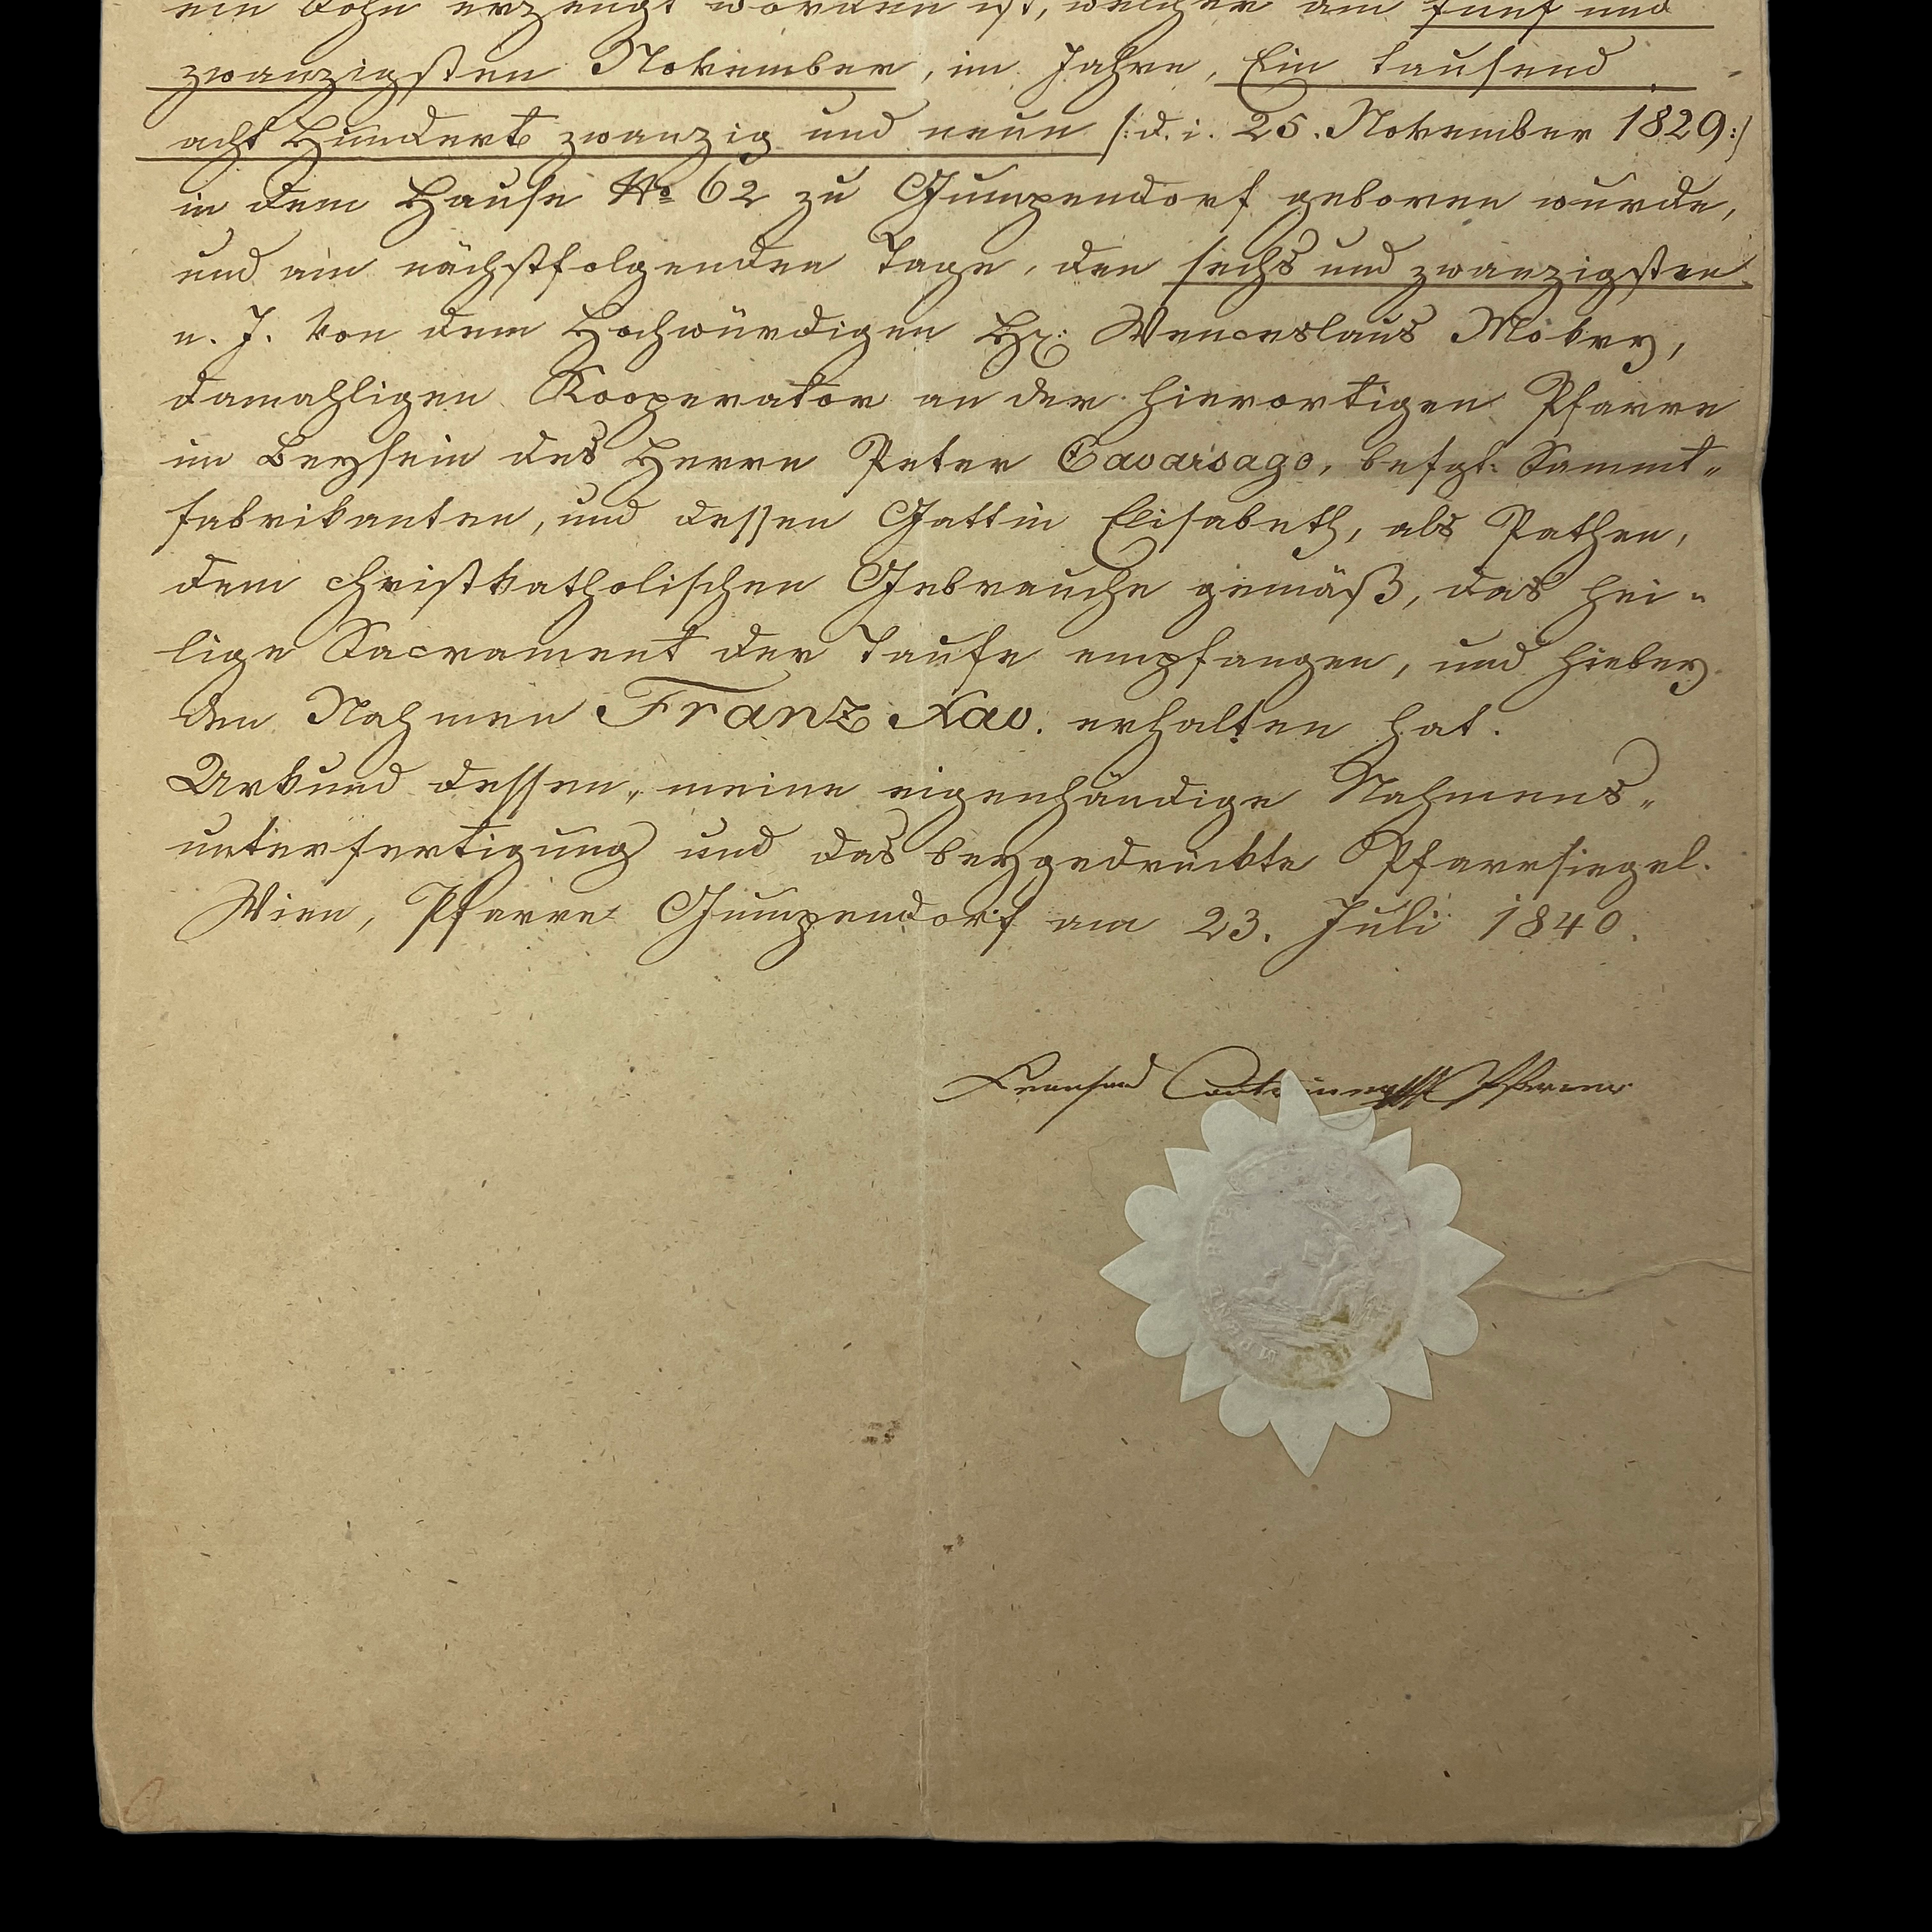 ein Sohn erzeugt worden ist, welcher am fünf und
zwanzigsten November, im Jahre, Ein tausend
acht Hundert zwanzig und neun /: d. i. 25. November 1829 :/
in dem Hause No 62 zu Gumpendorf geboren wurde,
und am nächstfolgenden Tage, den sechs und zwanzigsten
e. J. von dem Hochwürdigen Hr: Wenceslaus Mokry,
damahligen Kooperator an der hierortigen Pfarre
im Beysein des Herrn Peter Cavaisago, befgt: Sammt-
fabrikanten, und dessen Gattin Elisabeth, als Pathen,
dem christkatholischen Gebrauche gemäß, das hei-
lige Sacrament der Taufe empfangen, und hiebey
den Nahmen Franz Xav. erhalten hat.
Urkund dessen, meine eigenhändige Nahmens-
unterfertigung und das beygedruckte Pfarrsiegel.
Wien, Pfarre Gumpendorf am 23. Juli 1840.
Pfarrer